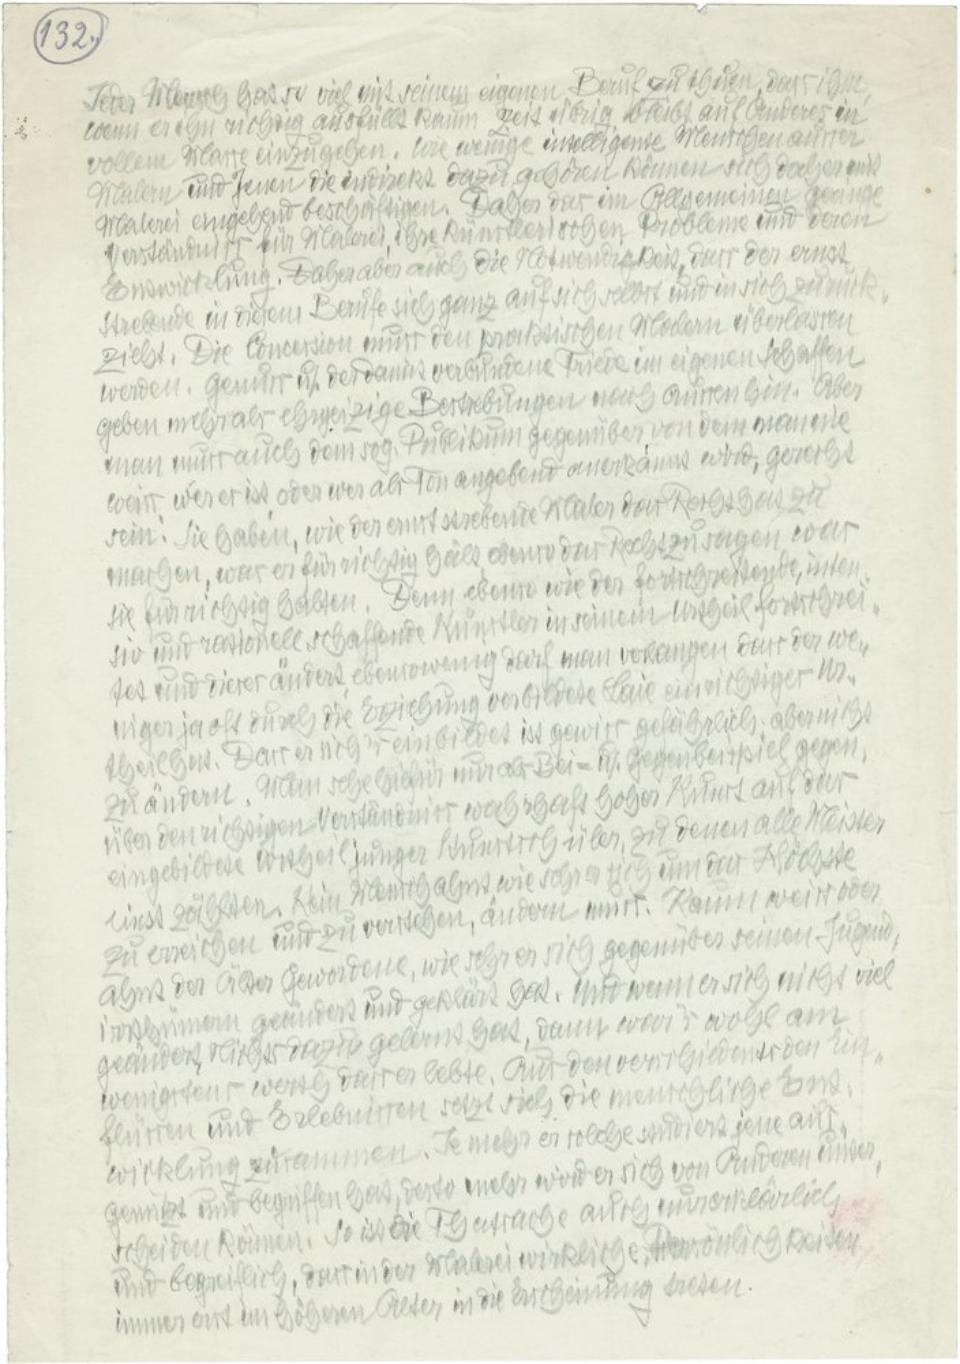 132.
Jeder Mensch hat so viel mit seinem eigenen Beruf zu thuen, dass ihm,
wenn er ihn richtig ausfüllt kaum Zeit übrig bleibt auf Anderes in
vollem Masse einzugehen. Wie wenige intelligente Menschen ausser
Malern und Jenen die indirekt dazu gehören können sich daher mit
Malerei eingehend beschäftigen. Daher das im Allgemeinen geringe
Verständniss für Malerei, ihre künstlerischen Probleme und deren
Entwicklung. Daher aber auch die Notwendigkeit, dass der ernst
strebende in diesem Berufe sich ganz auf sich selbst und in sich zurück-
zieht. Die Concession muss den praktischen Malern überlassen
werden. Genuss u. der damit verbundene Friede im eigenen Schaffen
geben mehr als ehrgeizige Bestrebungen nach aussen hin. Aber
man muss auch dem sog. Publikum gegenüber von dem man nie
weiss wer er ist oder wer als Ton angebend anerkannt wird, gerecht
sein. Sie haben, wie der ernst strebende Maler das Recht hat zu
machen, was er für richtig hält ebenso das Recht zu sagen was
sie für richtig halten. Denn ebenso wie der fortschreitende, inten-
siv und rationell schaffende Künstler in seinem Urtheil fortschrei-
tet und dieses ändert, ebensowenig darf man verlangen dass der we-
niger ja oft durch die Erziehung verbildete Laie ein richtiges Ur-
theil hat. Dass er sich's einbildet ist gewiss gefährlich; aber nicht
zu ändern. Man sehe hiefür nur als Bei- u. Gegenbeispiel gegen-
über den richtigen Verständniss wahrhaft hoher Kunst auf das
eingebildete Urtheil junger Kunstschüler, zu denen alle Meister
einst zählten. Kein Mensch ahnt wie sehr er sich um das Höchste
zu erreichen und zu verstehen, ändern muss. Kaum weiss oder
ahnt der Älter gewordene, wie sehr er sich gegenüber seinen Jugend-
irrthümern geändert und geklärt hat. Und wenn er sich nicht viel
geändert, Nichts dazu gelernt hat, dann war's wohl am
wenigstens werth dass er lebte. Aus den verschiedensten Ein-
flüssen und Erlebnissen setzt sich die menschliche Ent-
wicklung zusammen. Je mehr er solche studiert jene aus-
genützt und begriffen hat, desto mehr wird er sich von Anderen unter-
scheiden können. So ist die Thatsache auch
und begreiflich, dass in der Malerei wirkliche Persönlichkeiten
immer erst im höheren Alter in die Erscheinung treten.